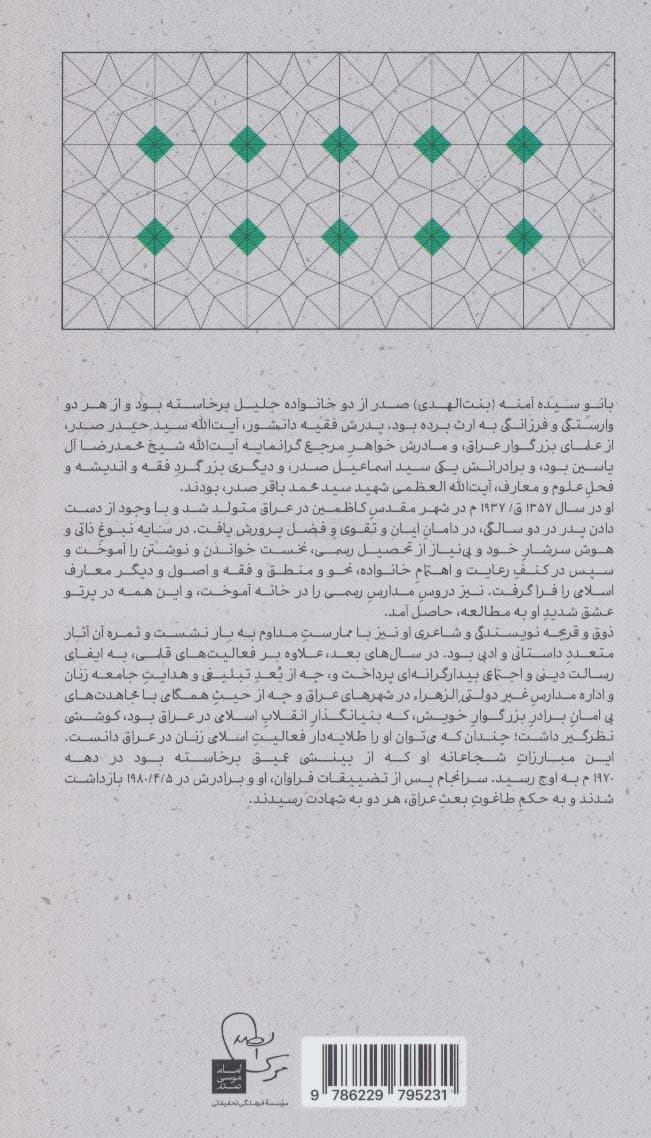 بانو سیده آمنه (بنت‌الهدی) صدر از دو خانواده جلیل برخاسته بود و از هر دو
وارستگی و فرزانگی به ارث برده بود. پدرش فقیه دانشور، آیت‌الله سید حیدر صدر،
از علمای بزرگوار عراق، و مادرش خواهرِ مرجع گرانمایه آیت‌الله شیخ محمدرضا آل
یاسین بود، و برادرانش یکی سید اسماعیل صدر، و دیگری بزرگمردِ فقه و اندیشه و
فحلِ علوم و معارف، آیت‌الله العظمی شهید سید محمد باقر صدر، بودند.
او در سال ۱۳۵۷ ق/ ۱۹۳۷ م در شهر مقدس کاظمین در عراق متولد شد و با وجود از دست
دادن پدر در دو سالگی، در دامانِ ایمان و تقوی و فضل پرورش یافت. در سایه نبوغِ ذاتی و
هوش سرشار خود و بی‌نیاز از تحصیل رسمی، نخست خواندن و نوشتن را آموخت و
سپس در کنفِ رعایت و اهتمامِ خانواده، نحو و منطق و فقه و اصول و دیگر معارف
اسلامی را فرا گرفت. نیز دروسِ مدارسِ رسمی را در خانه آموخت، و این همه در پرتو
عشق شدیدِ او به مطالعه، حاصل آمد.
ذوق و قریحه نویسندگی و شاعری او نیز با ممارستِ مداوم به بار نشست و ثمره آن آثار
متعددِ داستانی و ادبی بود. در سال‌های بعد، علاوه بر فعالیت‌های قلمی، به ایفای
رسالت دینی و اجتماعیِ بیدارگرانه‌ای پرداخت و، چه از بُعدِ تبلیغی و هدایتِ جامعه زنان
و اداره مدارسِ غیر دولتیِ الزهراء در شهرهای عراق و چه از حیثِ همگامی با مجاهدت‌های
بی امانِ برادرِ بزرگوارِ خویش، که بنیانگذارِ انقلابِ اسلامی در عراق بود، کوششی
نظرگیر داشت؛ چندان که می‌توان او را طلایه‌دار فعالیتِ اسلامی زنان در عراق دانست.
این مبارزاتِ شجاعانه او که از بینشی عمیق برخاسته بود در دهه
۱۹۷۰ م به اوج رسید. سرانجام پس از تضییقات فراوان، او و برادرش در ۱۹۸۰/۴/۵ بازداشت
شدند و به حکمِ طاغوتِ بعثِ عراق، هر دو به شهادت رسیدند.
امام
موسی
صدر
مؤسسهٔ فرهنگی تحقیقاتی
9 786229 795231